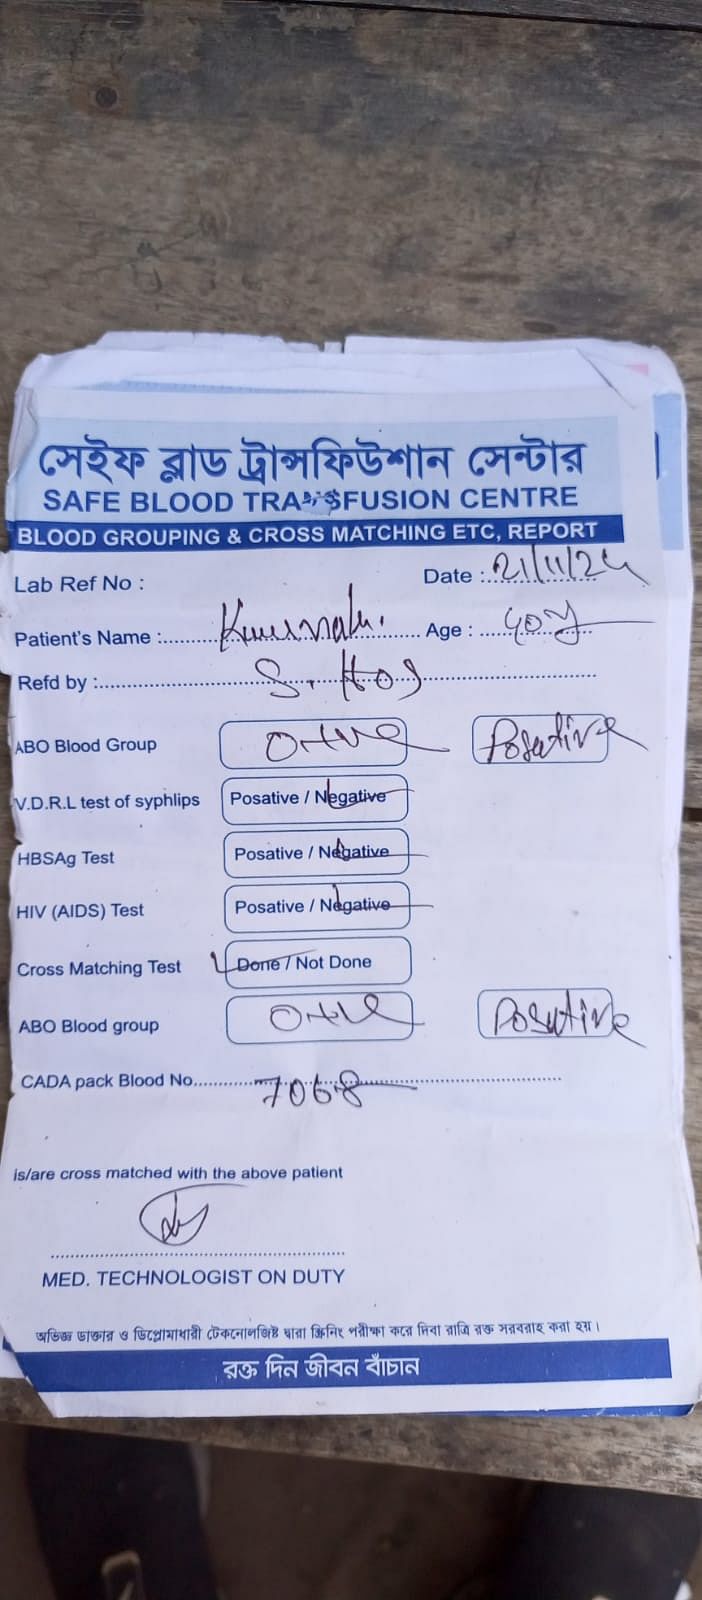 সেইফ ব্লাড ট্রান্সফিউশান সেন্টার
SAFE BLOOD TRANSFUSION CENTRE
BLOOD GROUPING & CROSS MATCHING ETC, REPORT
Lab Ref No :
Date : 21/11/24
Patient's Name : Age :
Refd by : S. Hos
ABO Blood Group O+ve Positive
V.D.R.L test of syphlips Posative / Negative
HBSAg Test Posative / Negative
HIV (AIDS) Test Posative / Negative
Cross Matching Test Done / Not Done
ABO Blood group O+ve Positive
CADA pack Blood No. 7068
is/are cross matched with the above patient
MED. TECHNOLOGIST ON DUTY
অভিজ্ঞ ডাক্তার ও ডিপ্লোমাধারী টেকনোলজিষ্ট দ্বারা স্ক্রিনিং পরীক্ষা করে দিবা রাত্রি রক্ত সরবরাহ করা হয়।
রক্ত দিন জীবন বাঁচান